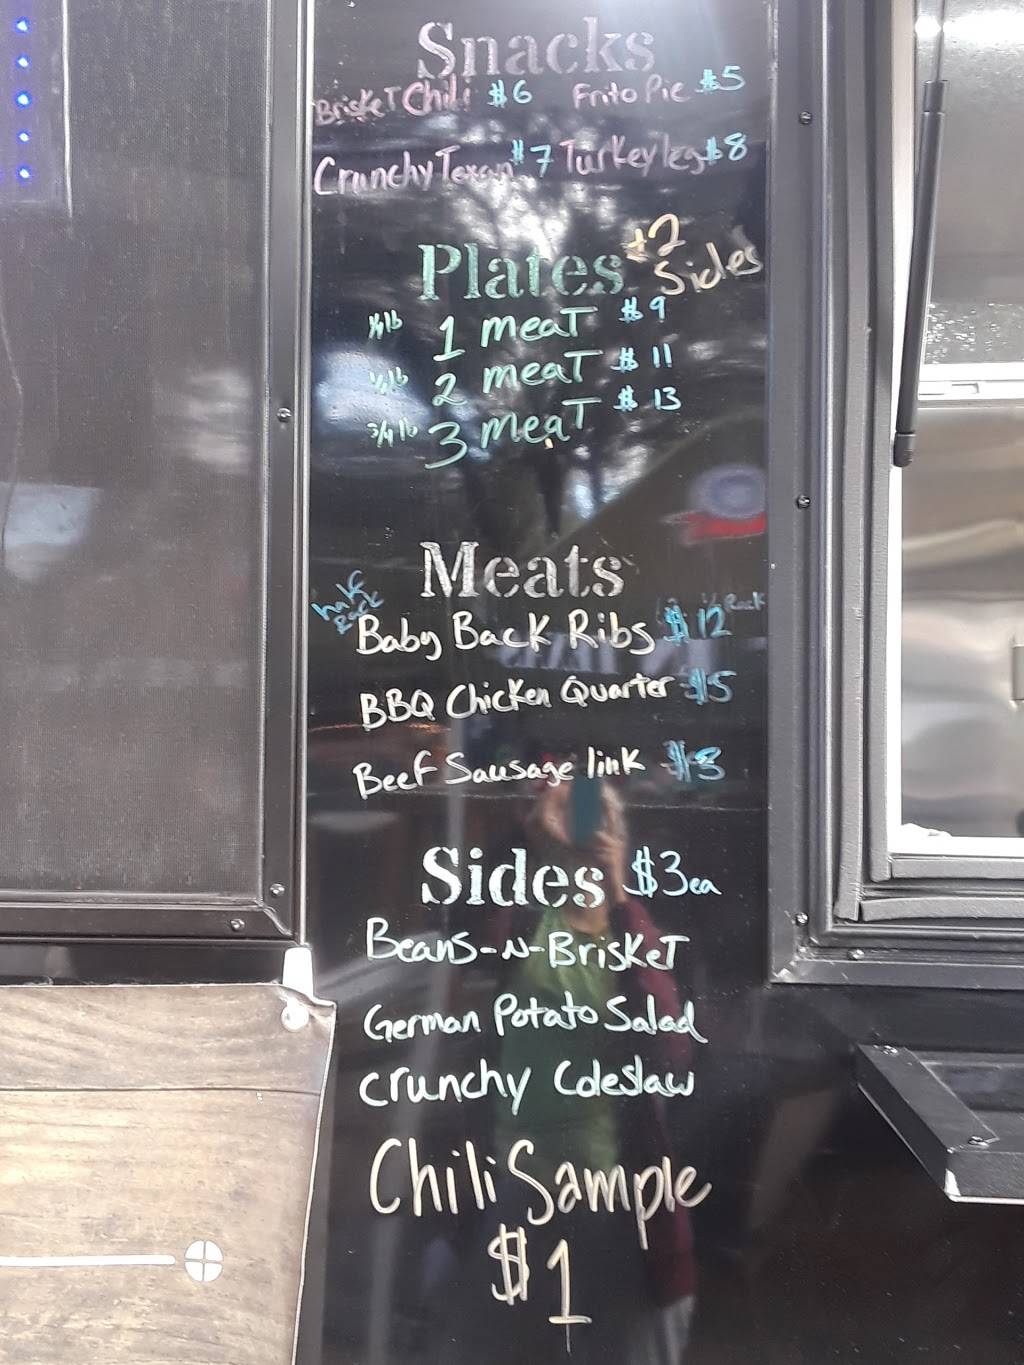 Snacks
Brisket Chili $6 Frito Pie $5
Crunchy Texan $7 Turkey leg $8
Plates +2 Sides
1/4 lb 1 meat $9
1/2 lb 2 meat $11
3/4 lb 3 meat $13
Meats
half Rack Baby Back Ribs $12 Rack
BBQ Chicken Quarter $5
Beef Sausage link $3
Sides $3 ea
Beans-N-Brisket
German Potato Salad
Crunchy Coleslaw
Chili Sample
$1